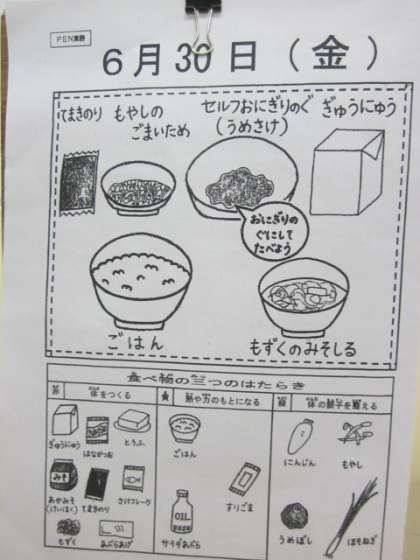 PEN票野
6月30日(金)
てまきのり
もやしの
ごまいため
セルフおにぎりのぐ
(うめさけ)
ぎゅうにゅう
おにぎりの
ぐにして
たべよう
ごはん
もずくのみそしる
食べ物の三つのはたらき
体をつくる
熱や力のもとになる
体の調子を整える
ぎゅうにゅう
はなかつお
とうふ
みそ
あかみそ
てまきのり
さけフレーク
もずく
あぶらあげ
ごはん
OIL
サラダあぶら
すりごま
にんじん
もやし
うめぼし
ほそねぎ